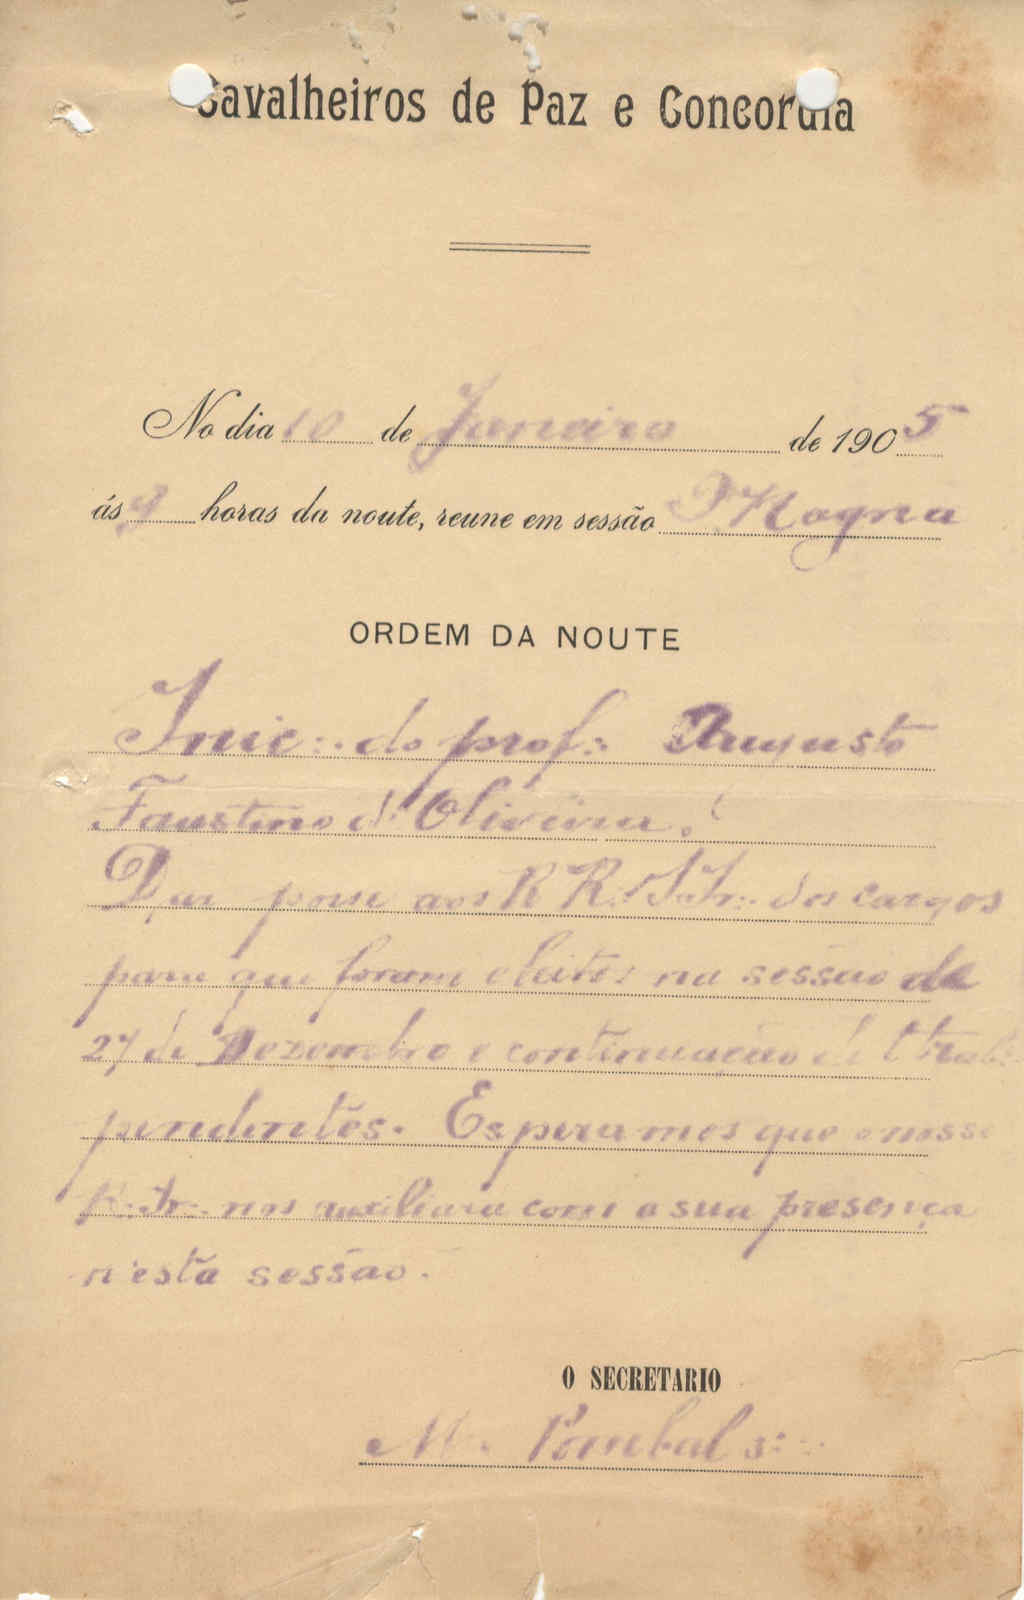 Cavalheiros de Paz e Concordia
No dia 10 de Janeiro de 1905
ás 9 horas da noute, reune em sessão Magna
ORDEM DA NOUTE
Inic∴ do prof∴ Augusto
Faustino d'Oliveira.
Dar posse aos RR∴ Ir∴ dos cargos
para que foram eleitos na sessão de
27 de Dezembro e continuação de trab∴
pendentes. Esperamos que o nosso
R∴ Ir∴ nos auxiliará com a sua presença
n'esta sessão.
O SECRETARIO
M. Pombal 3∴